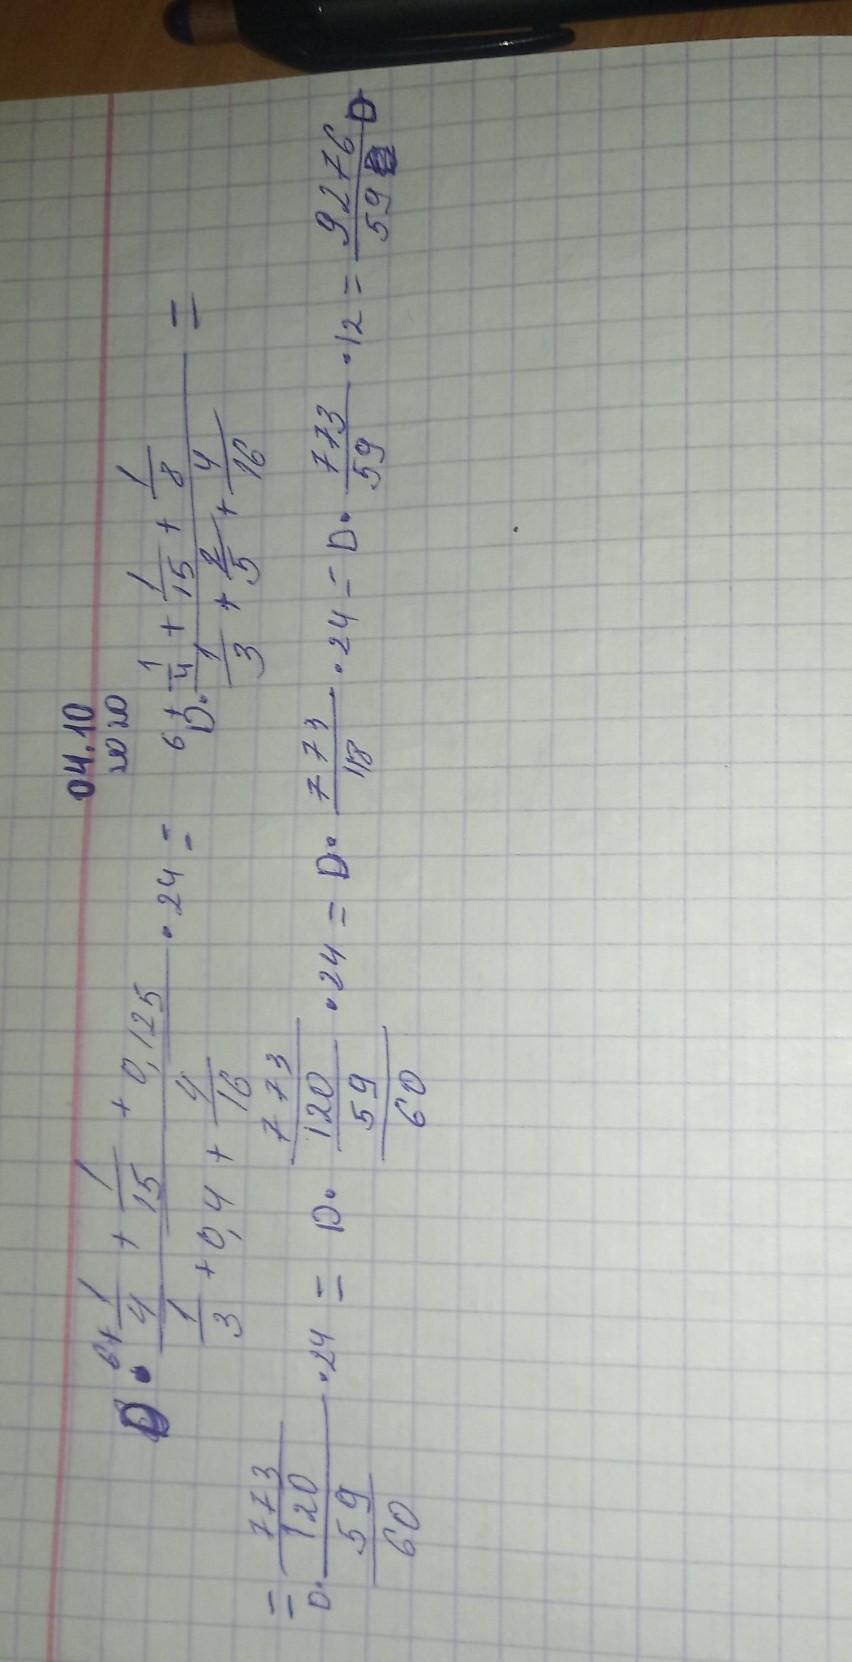 04.10
2020
D · (6 + 1/4 + 1/15 + 0,125)/(1/3 + 0,4 + 4/16) · 24 = D · (6 + 1/4 + 1/15 + 1/8)/(1/3 + 2/5 + 4/16) =
= D · (773/120)/(59/60) · 24 = D · (773/120)/(59/60) · 24 = D · 773/118 · 24 = D · 773/59 · 12 = 9276D/59